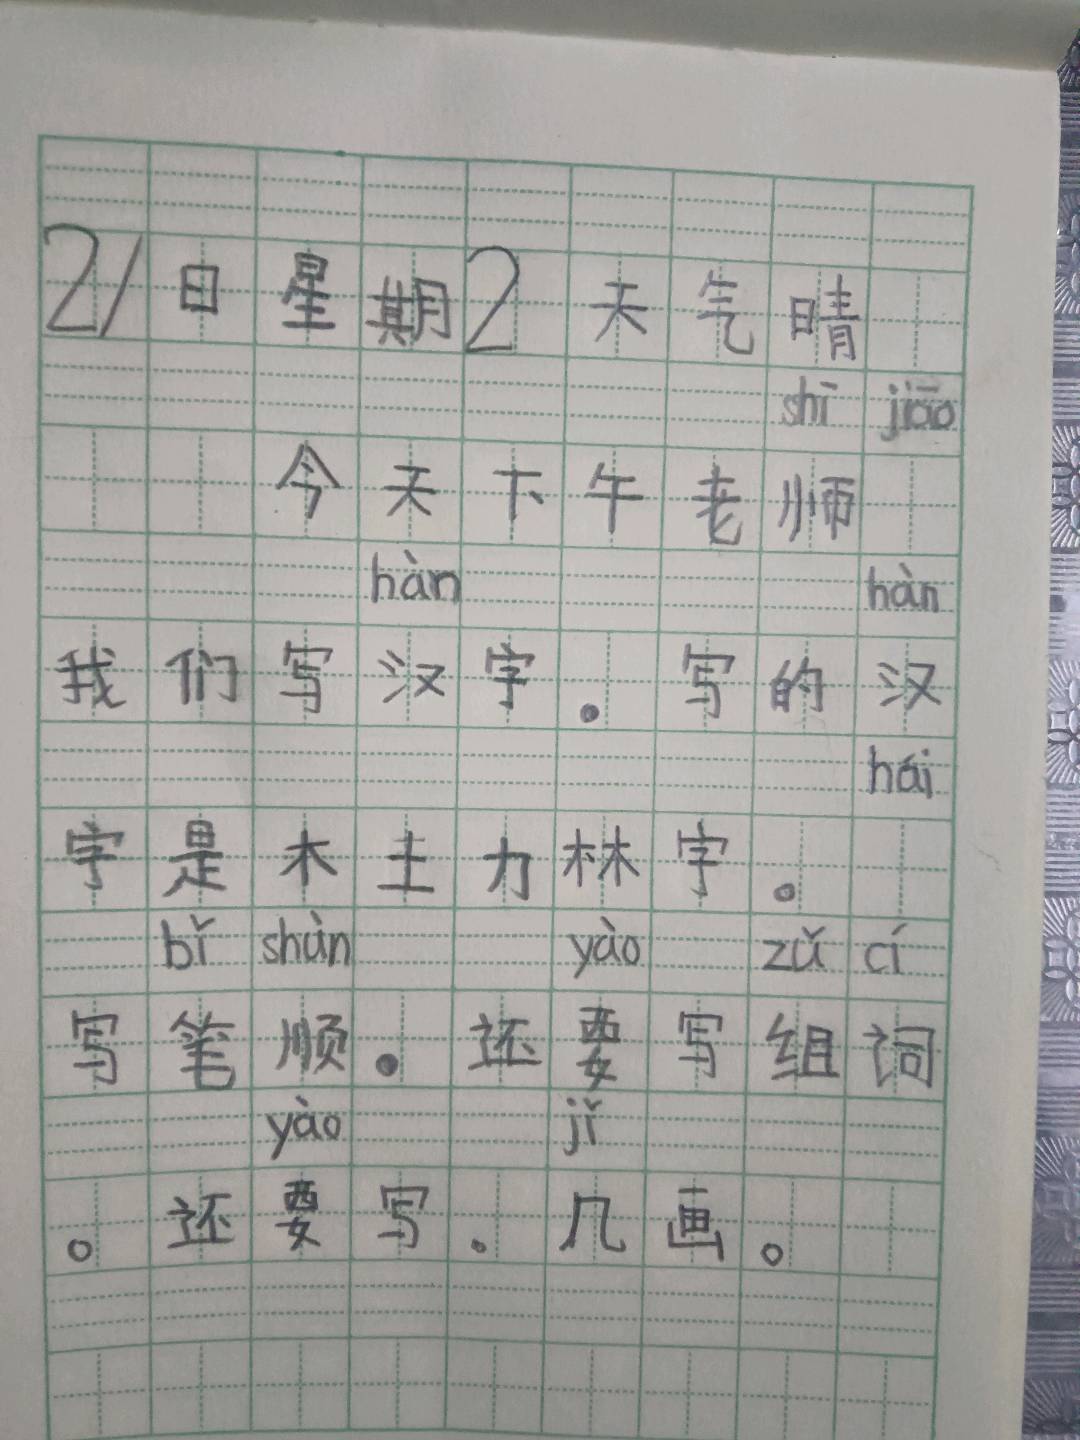 21日星期2天气晴
shī jiāo
今天下午老师
hàn hàn
我们写汉字。写的汉
hái
字是木土力林字。
bǐ shùn yào zǔ cí
写笔顺。还要写组词
yào jǐ
。还要写.几画。